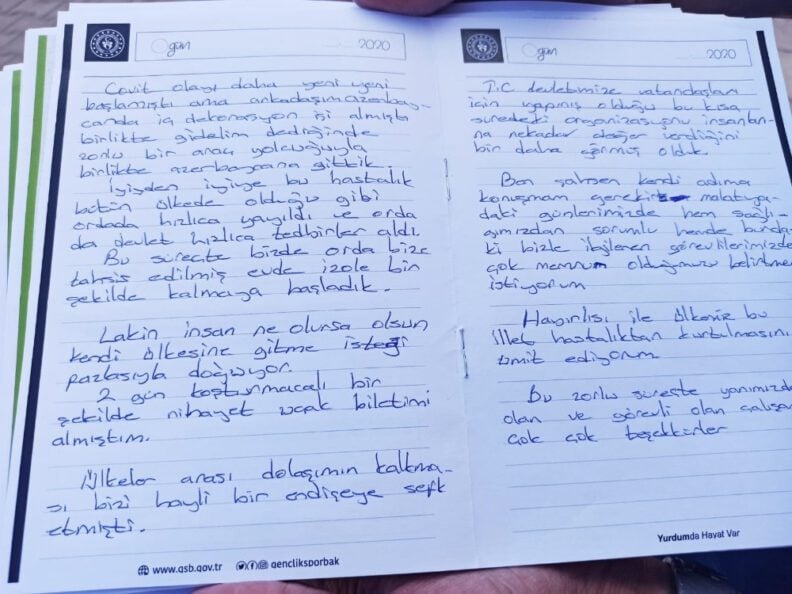 gün 2020
Covit olayı daha yeni yeni
başlamıştı ama arkadaşım azerbay-
canda iç dekorasyon işi almıştı
birlikte gidelim dediğinde
zorlu bir araç yolcuğuyla
birlikte azerbaycana gittik.
İyiden iyiye bu hastalık
bütün ülkede olduğu gibi
ordada hızlıca yayıldı ve orda
da devlet hızlıca tedbirler aldı
Bu süreçte bizde orda bize
tahsis edilmiş evde izole bir
şekilde kalmaya başladık.
Lakin insan ne olursa olsun
kendi ülkesine gitme isteği
fazlasıyla doğuyor.
2 gün koşturmacalı bir
şekilde nihayet uçak biletimi
almıştım.
Ülkeler arası dolaşımın kalkma-
sı bizi hayli bir endişeye sefk
etmişti.
www.gsb.gov.tr gencliksporbak
gün 2020
T.C devletimize vatandaşları
için yapmış olduğu bu kısa
süredeki organizasyonu insanları-
na nekadar değer verdiğini
bir daha görmüş olduk
Ben şahsen kendi adıma
konuşmam gerekir malatya-
daki günlerimizde hem sağlı-
ğımızdan sorumlu hemde burda-
ki bizle ilgilenen görevlilerimizde
çok memnum olduğumuzu belirtme
istiyorum
Hayırlısı ile ülkemiz bu
illet hastalıktan kurtulmasını
ümit ediyorum
Bu zorlu süreçte yanımızda
olan ve görevli olan çalışan
çok çok teşekkürler
Yurdumda Hayat Var